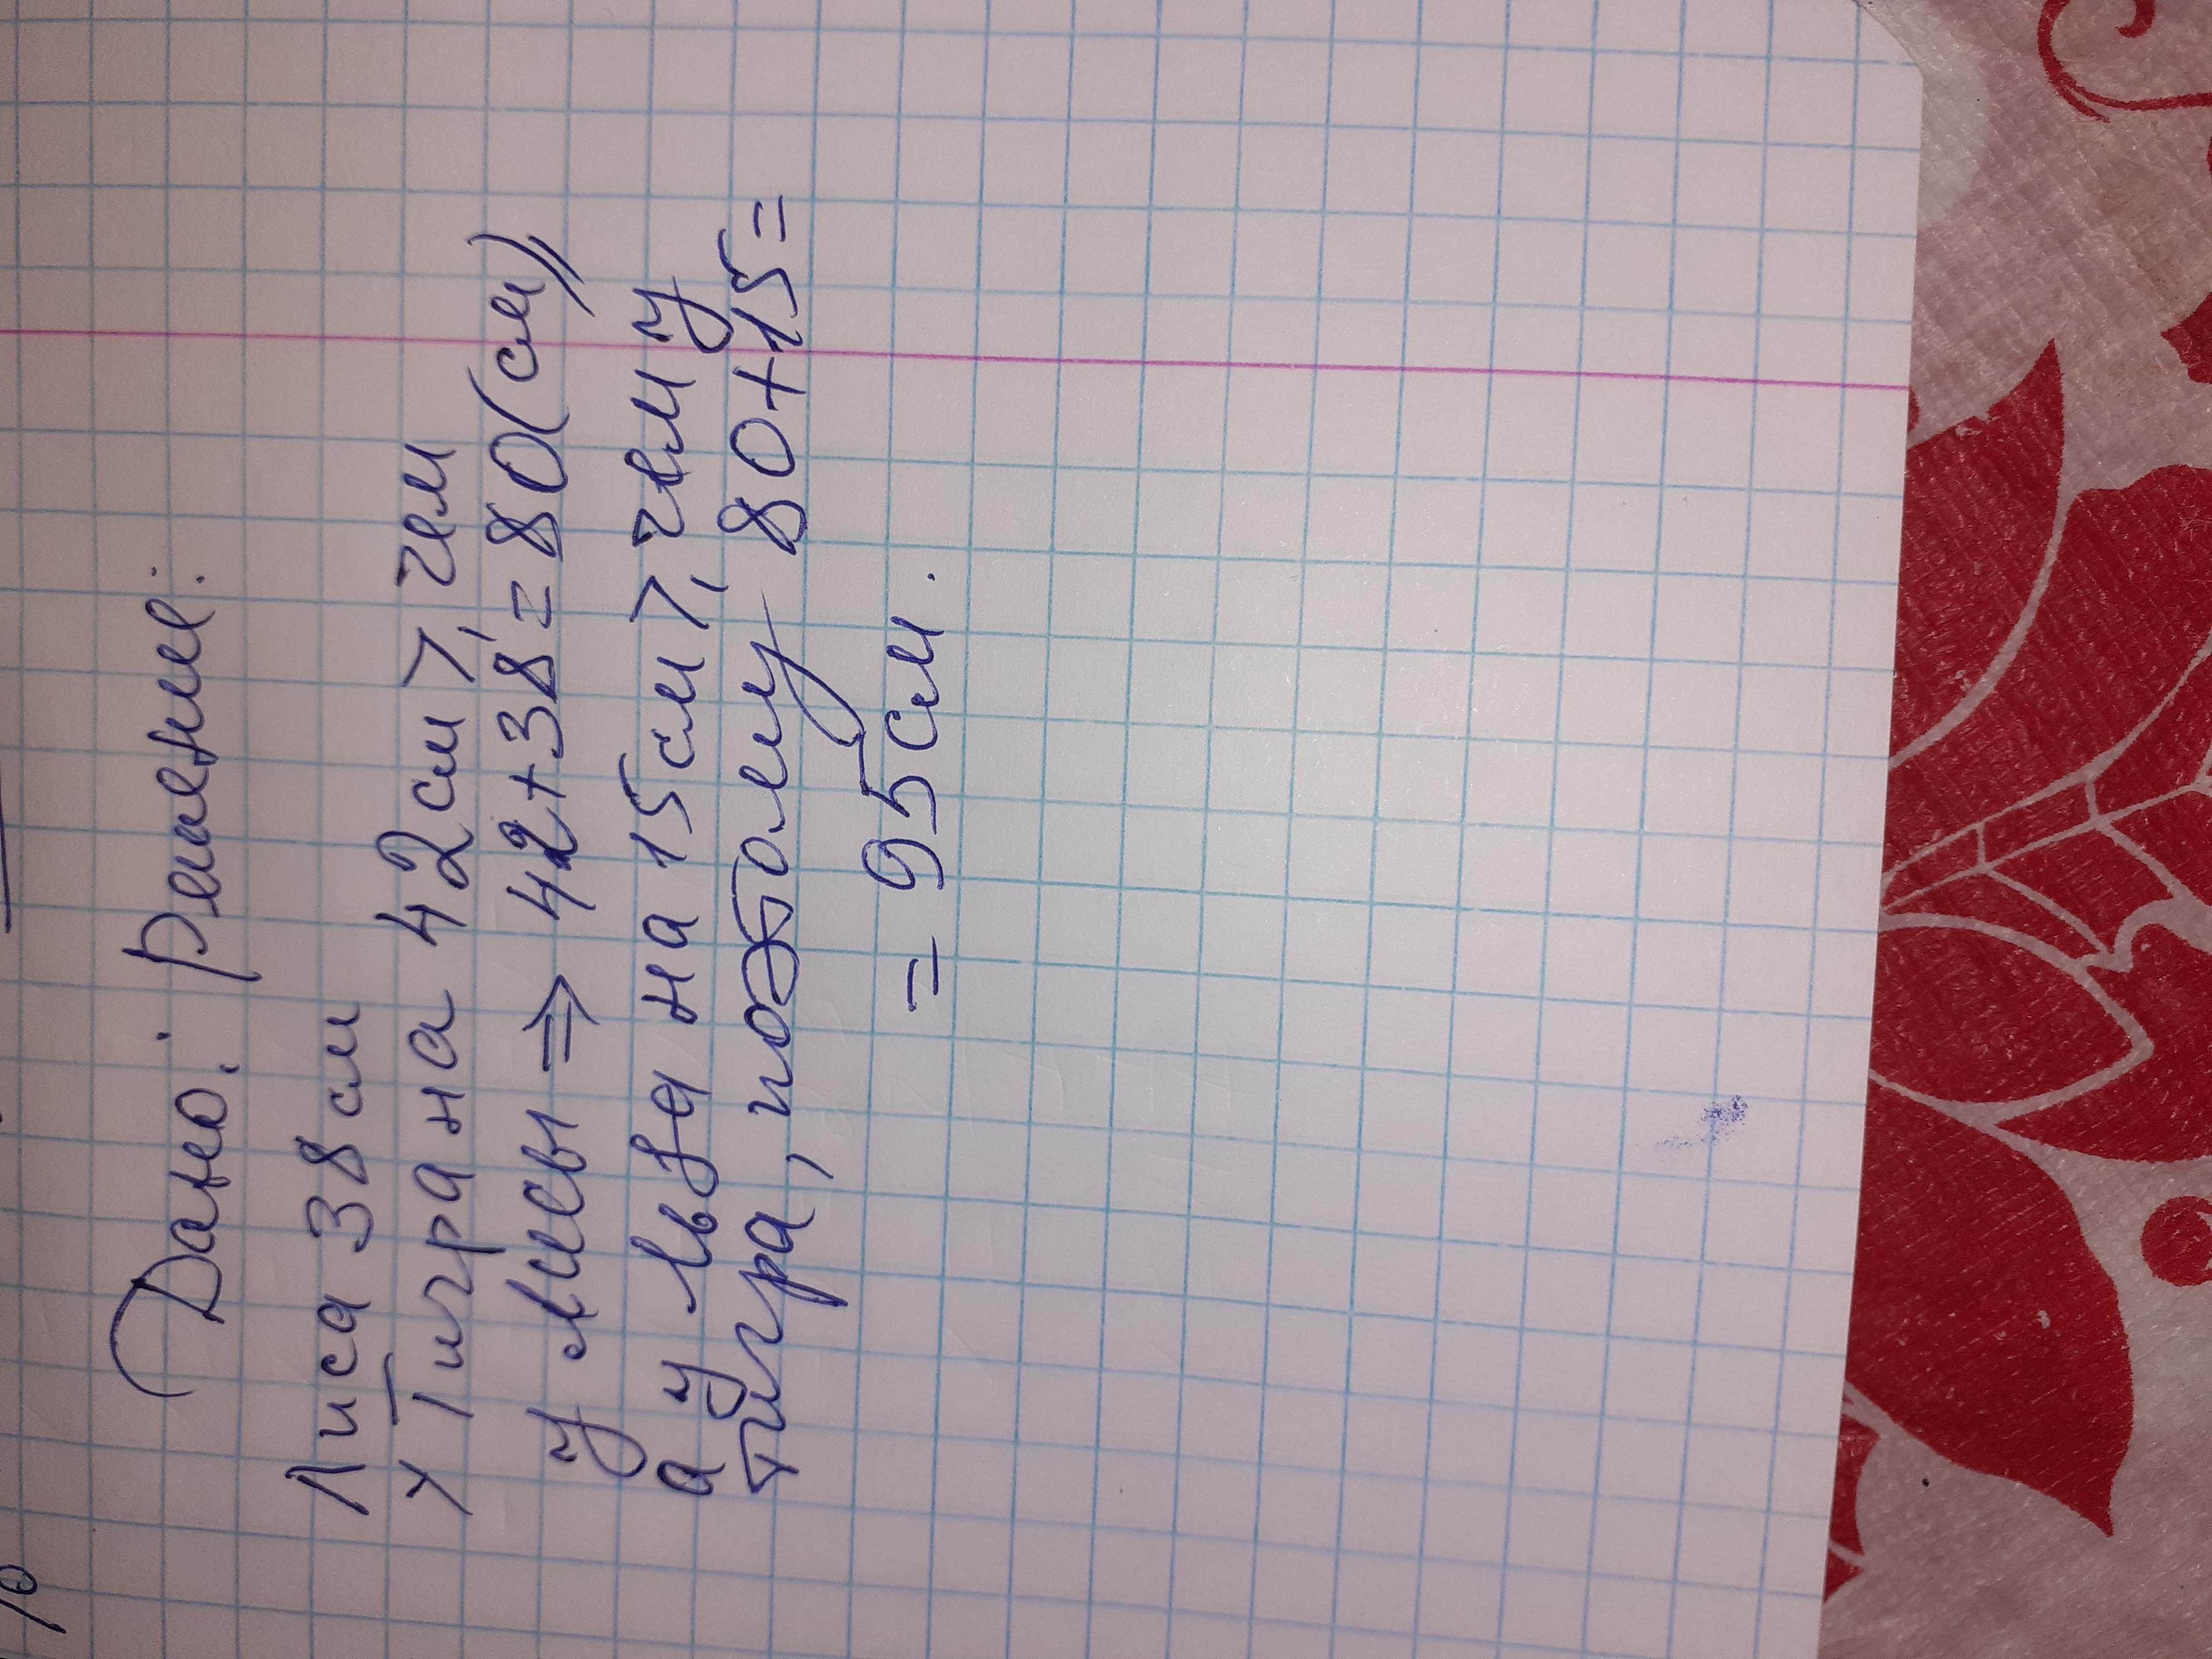 Дано: Решение:
Лиса 38 см
у Тигра на 42 см >, чем
у лисы => 42+38=80(см),
а у льва на 15 см >, чем у
тигра, поэтому 80+15=
= 95 см.